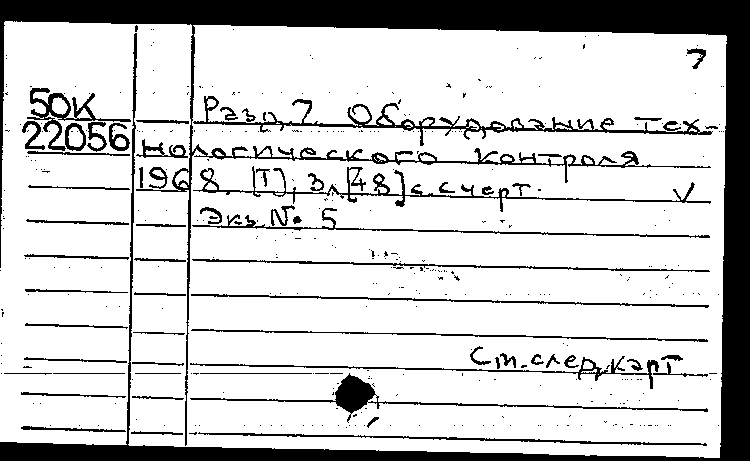 7
50К Разд. 7. Оборудование тех-
22056 нологического контроля.
1968. [Т], 3л, [48] с. с черт. ✓
Экз. № 5
См. след. карт.